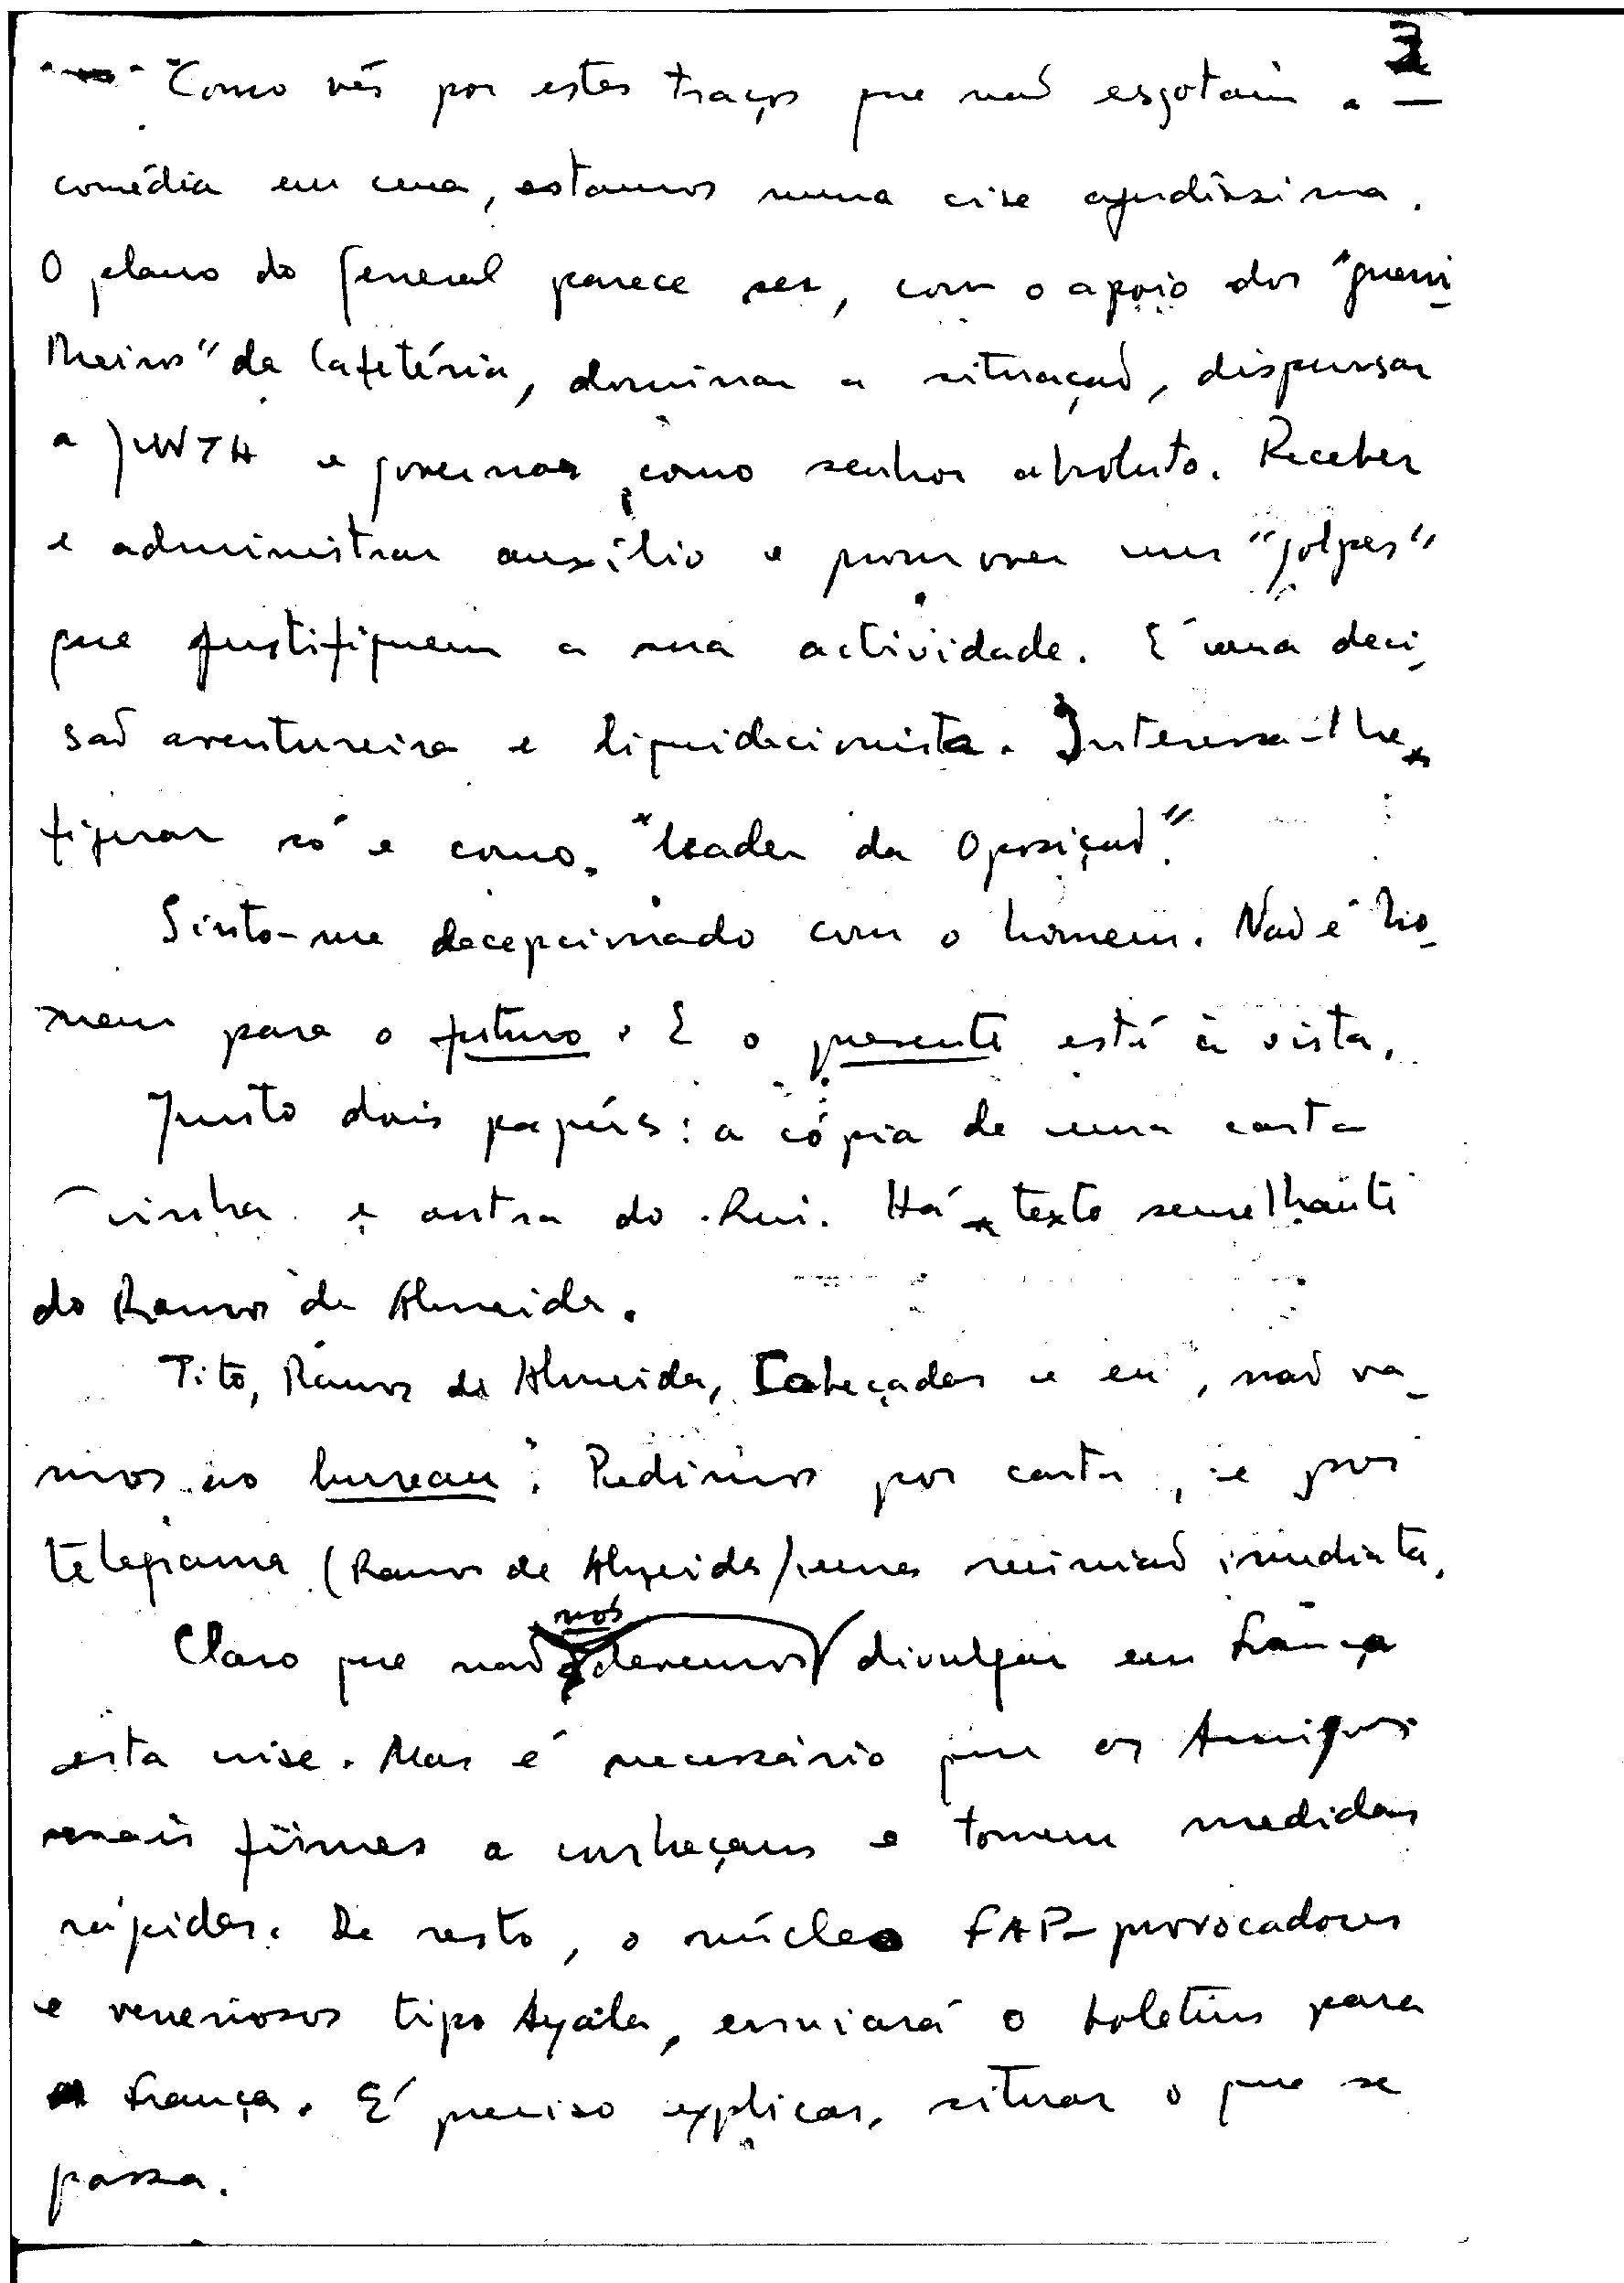 3
Como vês por estes traços que não esgotam a
comédia em cena, estamos numa crise agudíssima.
O plano do general parece ser, com o apoio dos "guerri-
lheiros" da Cafetéria, dominar a situação, dispensar
a JUNTA e governar como senhor absoluto. Receber
e administrar auxílio e promover uns "golpes"
que justifiquem a sua actividade. É uma deci-
são aventureira e liquidacionista. Interessa-lhe
figurar só e como "leader da Oposição".
Sinto-me decepcionado com o homem. Não é ho-
mem para o futuro. E o presente está à vista.
Junto dois papéis: a cópia de uma carta
minha e outra do Rui. Há texto semelhante
do Ramos de Almeida.
Tito, Ramos de Almeida, Cabeçadas e eu, não va-
mos ao bureau. Pedimos por carta, e por
telegrama (Ramos de Almeida) uma reunião imediata.
Claro que não devemos nós divulgar em França
esta crise. Mas é necessário que os Amigos
mais firmes a conheçam e tomem medidas
rápidas. De resto, o núcleo FAP-provocadores
e venenosos tipo Ayala, enviará o boletim para
França. É preciso explicar, situar o que se
passa.